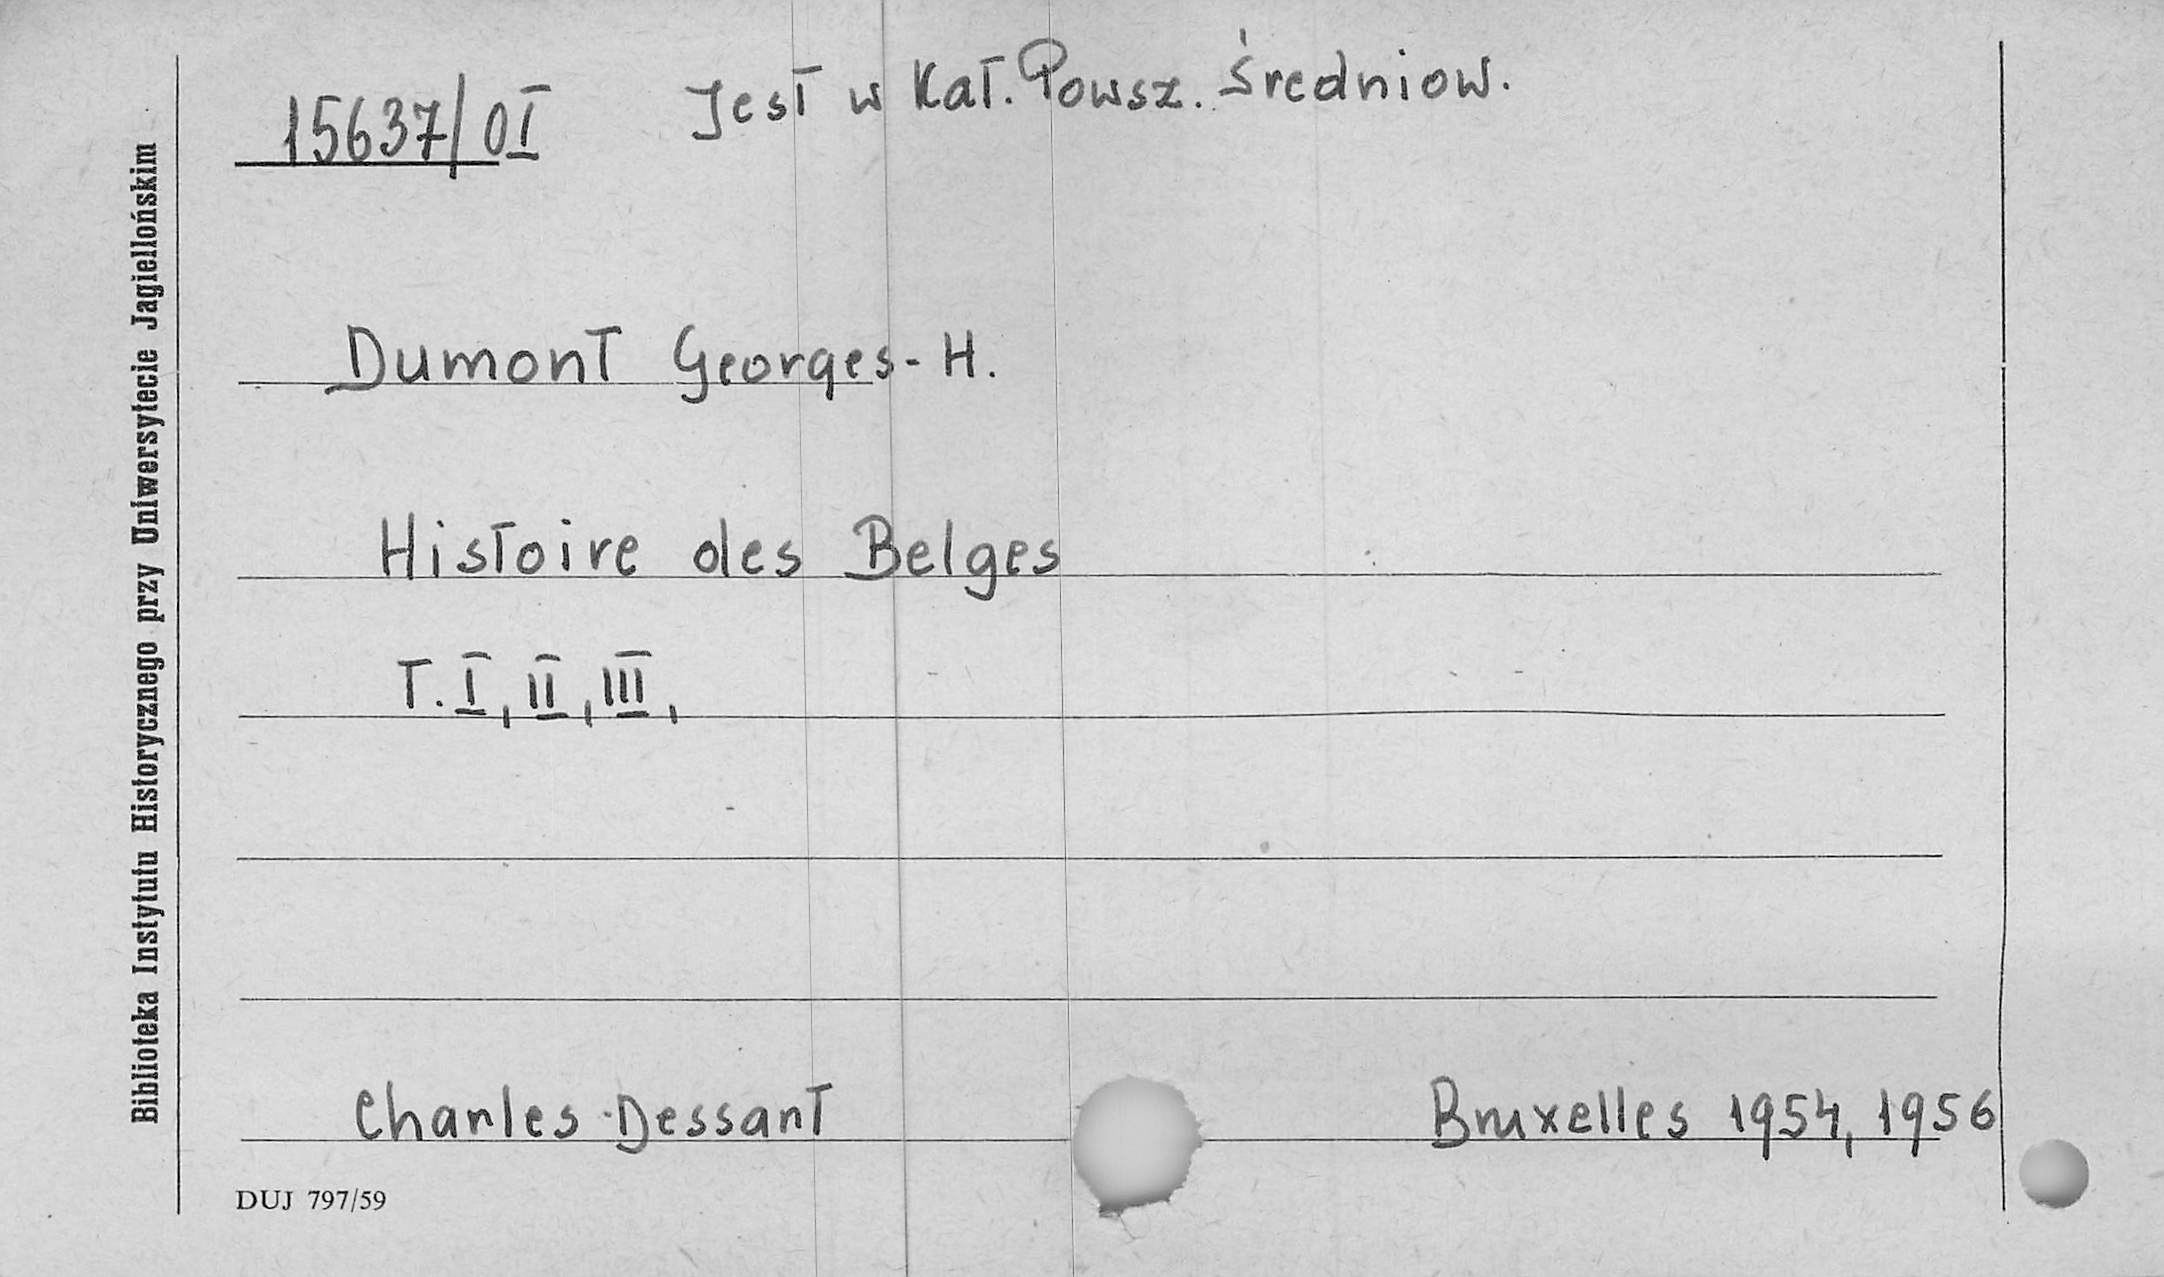 15637/OI Jest w Kat. Powsz. Średniow.
Dumont Georges-H.
Histoire des Belges
T. I, II, III,
Charles Dessant Bruxelles 1954, 1956
DUJ 797/59
Biblioteka Instytutu Historycznego przy Uniwersytecie Jagiellońskim